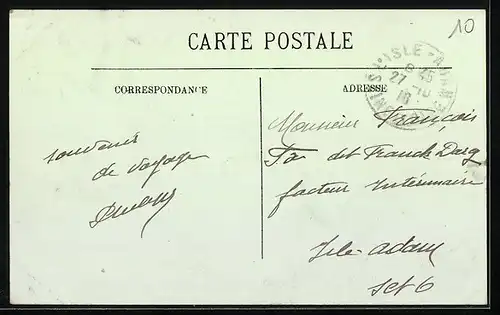 10
CARTE POSTALE
CORRESPONDANCE
ADRESSE
L'ISLE-ADAM
8 35
27 -10
16
souvenir
de voyage
Monsieur François
dit Franck Darq
facteur intérimaire
Isle-adam
Set O